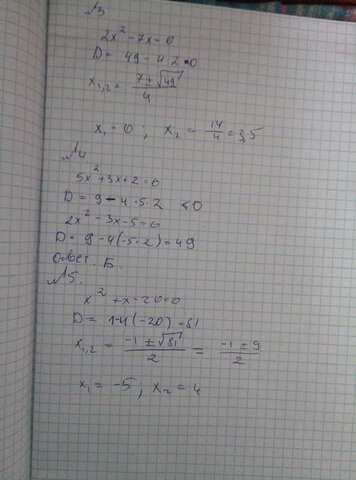 №3
2x² - 7x = 0
D = 49 - 4·2·0
x₁,₂ = (7 ± √49) / 4
x₁ = 0 ; x₁ = 14/4 = 3,5
№4
5x² + 3x + 2 = 0
D = 9 - 4·5·2 < 0
2x² - 3x - 5 = 0
D = 9 - 4(-5·2) = 49
Ответ. Б.
№5.
x² + x - 20 = 0
D = 1-4(-20) = 81
x₁,₂ = (-1 ± √81) / 2 = (-1 ± 9) / 2
x₁ = -5 ; x₂ = 4